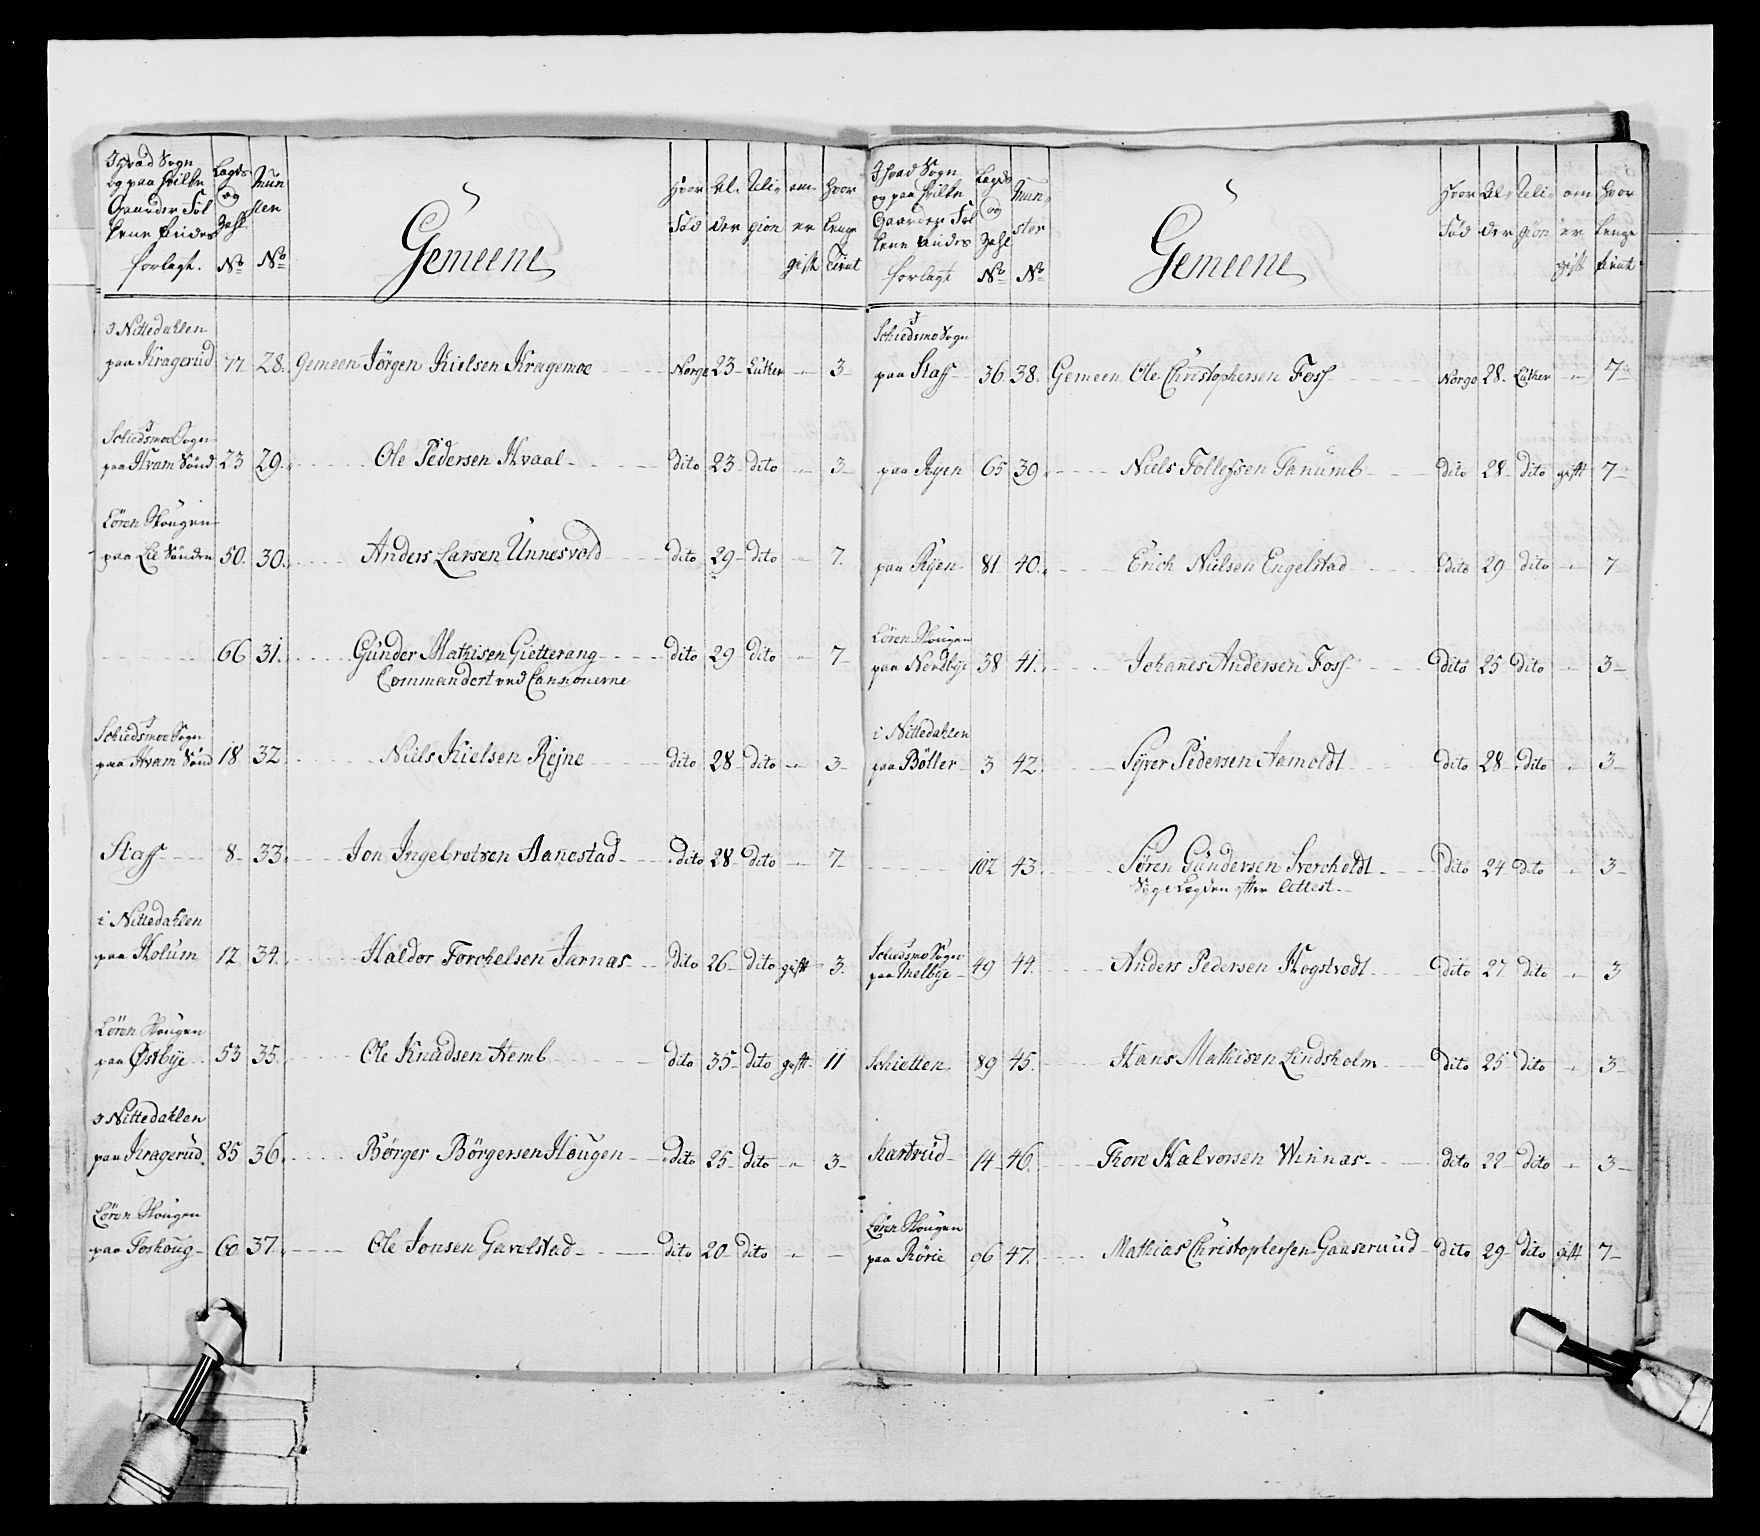 I hvad Sogn og paa hvilke Gaarder Folkene findes forlagt.
Lægds og Zahl No
Mun ster No
Gemeene
Hvor Fød
Al der
Reli gion
om er gift
Hvor lenge Tient
I Nittedahlen
paa Kragerud 77 28. Gemeen Jörgen Kielsen Kragemoe Norge 23 Luther „ 3
I Schiedsmoe Sogn
paa Hvam Sönd 23 29. Ole Pedersen Hvaal dito 23 dito „ 3
Lören Skougen
paa Lie Sönden 50. 30. Anders Larsen Unnesvold dito 29 dito „ 7.
66 31. Gunder Mathisen Gietterang dito 29 dito „ 7
Commandert ved Cannonerne
I Schiedsmoe Sogn
paa Hvam Sönd 18 32. Niels Kielsen Rejne dito 28 dito „ 3
Staff 8 33. Jon Ingebretsen Aanestad dito 28 dito „ 7
i Nittedahlen
paa Holum 12 34. Haldor Torchelsen Jarnas dito 26 dito gift 3.
Lören Skougen
paa Østbye 53 35. Ole Knudsen Hemb dito 35 dito gift 11
I Nittedahlen
paa Kragerud 85 36. Børger Börgersen Hougen dito 25 dito „ 3
Lören Skougen
paa Toshoug 60 37. Ole Jonsen Gavelstad dito 20 dito „ –
I hvad Sogn og paa hvilke Gaarder Folkene findes forlagt
Lægds og Zahl No
Mun ster No
Gemeene
Hvor Fød
Al der
Reli gion
om er gift
Hvor lenge tient
I Schiedsmo Sogn
paa Staff 36 38. Gemeen Ole Christophersen Foss Norge 28. Luther „ 7
paa Ryen 65 39. Niels Tollefsen Tanumb dito 28 dito gift 7
paa Ryen 81 40. Erich Nielsen Engelstad dito 29 dito „ 7
Lören Skougen
paa Nordbye 38 41. Johanes Andersen Foss dito 25 dito „ 3
i Nittedahlen
paa Böller 3 42. Syver Pedersen Aamoldt dito 28 dito „ 3
102 43. Sören Gundersen Svercholdt dito 24 dito „ 3
Syg i Lægden efter Attest.
Schiedsmo Sogn
paa Melbye 49 44. Anders Pedersen Hogstvedt dito 27 dito „ 3
Schietten 89 45. Hans Mathisen Lindsholm dito 25 dito „ 3
Hartvud 14 46. Thore Halvorsen Winnas dito 22 dito „ 3
Lören Skougen
paa Rörie 96 47. Mathias Christophersen Gaaseruud dito 29 dito gift 7